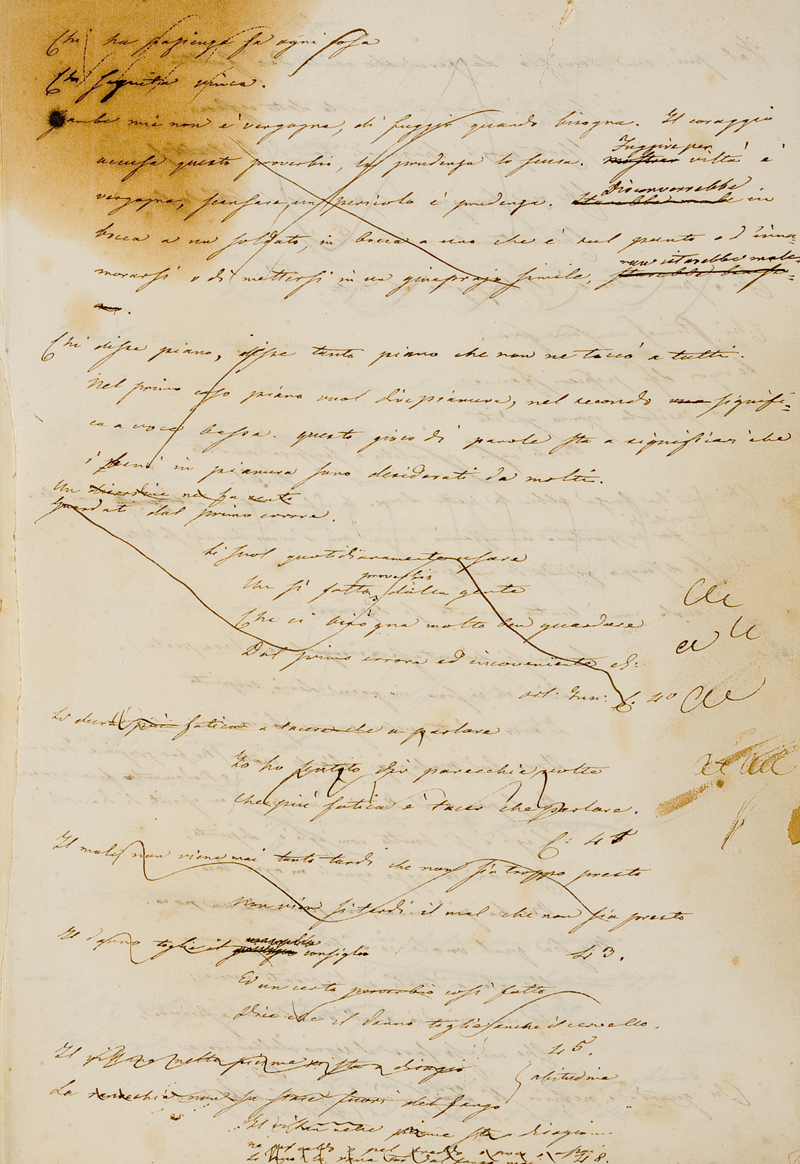 Chi ha pazienza fa ogni cosa
Chi seguita vince.
Gambe mie non è vergogna, di fuggir quando bisogna. Il coraggio
accusa questo proverbio, la prudenza lo scusa. Fuggire per viltà è
vergogna, scansare un pericolo è prudenza. Disconverrebbe in
bocca a un soldato, in bocca a uno che è sul punto o d'inna-
morarsi o di mettersi in un ginepraio simile, non istarebbe male.
Chi disse piano, disse tanto piano che non ne toccò a tutti.
Nel primo caso piano vuol dir pianura, nel secondo signifi-
ca a voce bassa. questo gioco di parole sta a significar che
i in pianura sono desiderati da molti.
Un disordine ne fa cento
Guardati dal primo errore.
Si suol quotidianamente usare
Un sì fatto proverbio dalla gente
Che ci bisogna molto ben guardare
Dal primo errore ed inconveniente
C. 40
Si dura più fatica a tacere che a parlare
Io ho sentito dir parecchie volte
Che più fatica è tacer che parlare.
C. 45
Il male non viene mai tanto tardi che non sia troppo presto
Non vien sì tardi il mal che non sia presto
Il danno toglie il consiglio
43.
Ed un certo proverbio così fatto
Dice che il danno toglie anche il cervello.
45.
Il nella sta a disagio
La ranocchia non sa stare fuori del fango
Il nelle sta a disagio
48.